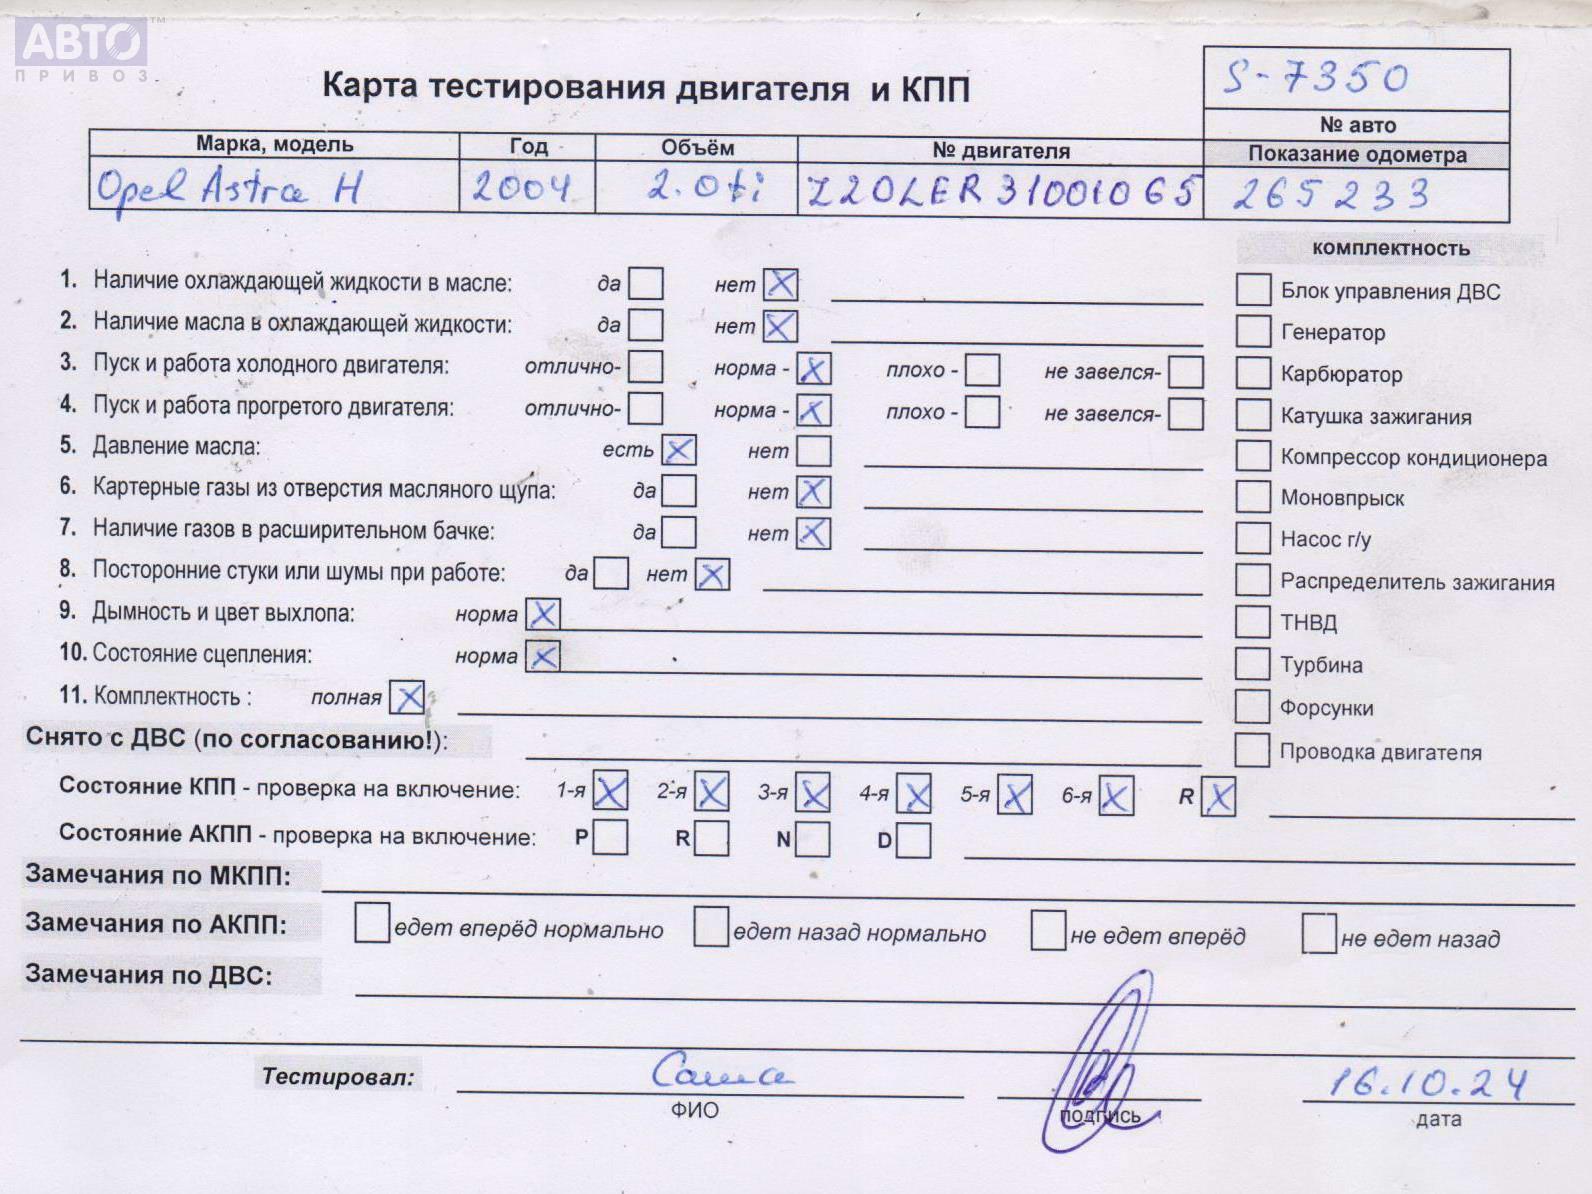 АВТО™
ПРИВОЗ
Карта тестирования двигателя и КПП
S-7350
№ авто
Марка, модель Год Объём № двигателя Показание одометра
Opel Astra H 2004 2.0ti Z20LER31001065 265233
комплектность
1. Наличие охлаждающей жидкости в масле: да нет X
2. Наличие масла в охлаждающей жидкости: да нет X
3. Пуск и работа холодного двигателя: отлично- норма - X плохо - не завелся-
4. Пуск и работа прогретого двигателя: отлично- норма - X плохо - не завелся-
5. Давление масла: есть X нет
6. Картерные газы из отверстия масляного щупа: да нет X
7. Наличие газов в расширительном бачке: да нет X
8. Посторонние стуки или шумы при работе: да нет X
9. Дымность и цвет выхлопа: норма X
10. Состояние сцепления: норма X
11. Комплектность : полная X
Блок управления ДВС
Генератор
Карбюратор
Катушка зажигания
Компрессор кондиционера
Моновпрыск
Насос г/у
Распределитель зажигания
ТНВД
Турбина
Форсунки
Проводка двигателя
Снято с ДВС (по согласованию!):
Состояние КПП - проверка на включение: 1-я X 2-я X 3-я X 4-я X 5-я X 6-я X R X
Состояние АКПП - проверка на включение: P R N D
Замечания по МКПП:
Замечания по АКПП: едет вперёд нормально едет назад нормально не едет вперёд не едет назад
Замечания по ДВС:
Тестировал: Саша 16.10.24
ФИО подпись дата